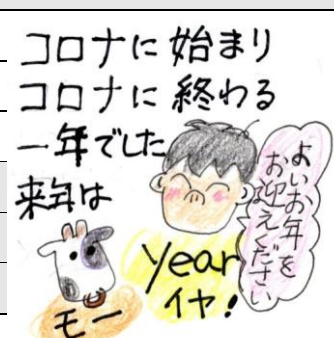 コロナに始まり
コロナに終わる
一年でした
来年は
よいお年を
お迎えください
year
イヤ!
モー